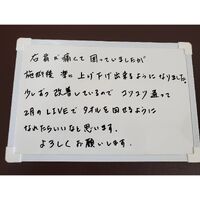 右肩が痛くて困っていましたが
施術後 楽に上げ下げ出来るようになりました。
少しずつ改善しているので コツコツ通って
2月のLIVEで タオルを回せるように
なれたらいいなと思います。
よろしくお願いします。